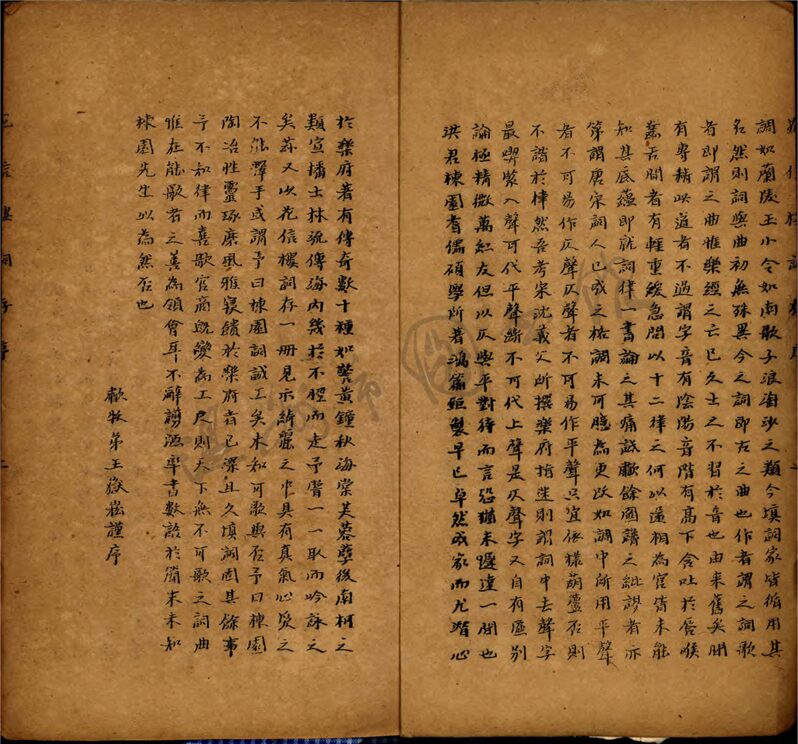 調如蘭陵王小令如南歌子浪淘沙之類今填詞家皆循用其
名然則詞與曲初無殊異今之詞即古之曲也作者謂之詞歌
者即謂之曲惟樂經之亡已久士之不習於音也由來舊矣間
有專精此道者不過謂字音有陰陽音階有高下含吐於唇喉
齒舌間者有輕重緩急問以十二律之何以還相為宮皆未能
知其底蘊即就詞律一書論之其痛詆嘯餘圖譜之紕謬者亦
第謂唐宋詞人已成之格調未可臆為更改如調中所用平聲
者不可易作仄聲仄聲者不可易作平聲只宜依樣葫蘆否則
不諧於律然吾考宋沈義父所撰樂府指迷則謂詞中去聲字
最要緊入聲可代平聲 不可代上聲是仄聲字又自有區別
論極精微萬紅友但以仄與平對待而言恐猶未達一間也
洪君棟園耆儒碩學所著鴻篇鉅製早已卓然成家而尤潛心
於樂府著有傳奇數十種如警黃鐘秋海棠芙蓉孽後南柯之
類宣播士林流傳海內幾於不脛而走予嘗一一取而吟詠之
矣茲又以花信樓詞存一冊見示綺麗之中具有真氣心愛之
不能釋手或謂予曰棟園詞誠工矣未知可歌與否予曰棟園
陶冶性靈琢磨風雅寢饋於樂府者已深且久填詞固其餘事
予不知律而喜歌宮商既變為工尺則天下無不可歌之詞曲
惟在能歌者之善為領會耳不辭謭陋率書數語於簡末未知
棟園先生以為然否也
歗牧弟王嶽崧謹序